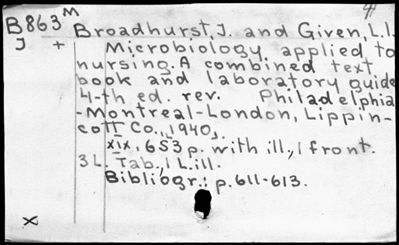 B863 M Broadhurst, J. and Given, L.I.
J + Microbiology applied to
nursing. A combined text
book and laboratory guide
4-th ed. rev. Philadelphia
-Montreal-London, Lippin-
cott Co., 1940,
XIX, 653 p. with ill., 1 front.
3 L. Tab., 1 L. ill.
Bibliogr.: p. 611-613.
x